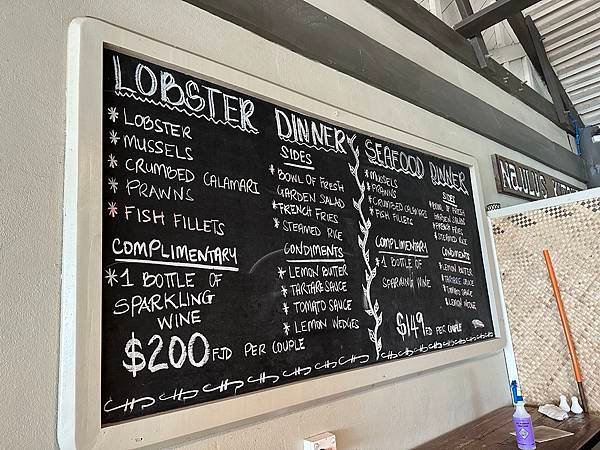 LOBSTER DINNER
* LOBSTER
* MUSSELS
* CRUMBED CALAMARI
* PRAWNS
* FISH FILLETS
COMPLIMENTARY
* 1 BOTTLE OF
SPARKLING
WINE
$200 FJD PER COUPLE
SIDES
* BOWL OF FRESH
GARDEN SALAD
* FRENCH FRIES
* STEAMED RICE
CONDIMENTS
* LEMON BUTTER
* TARTARE SAUCE
* TOMATO SAUCE
* LEMON WEDGES
SEAFOOD DINNER
* MUSSELS
* PRAWNS
* CRUMBED CALAMARI
* FISH FILLETS
COMPLIMENTARY
* 1 BOTTLE OF
SPARKLING WINE
$149 FJD PER COUPLE
SIDES
* BOWL OF FRESH
GARDEN SALAD
* FRENCH FRIES
* STEAMED RICE
CONDIMENTS
* LEMON BUTTER
* TARTARE SAUCE
* TOMATO SAUCE
* LEMON WEDGES